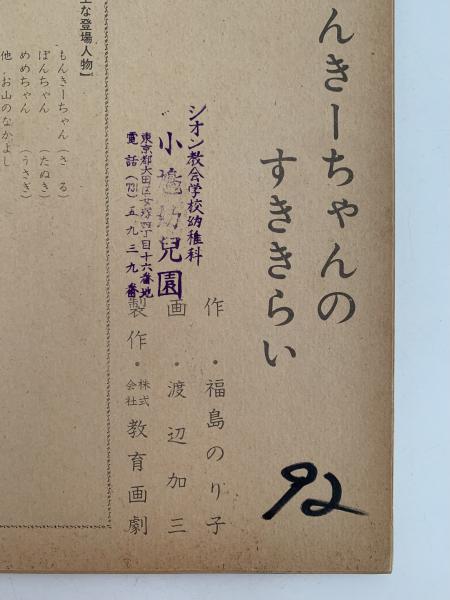 んきーちゃんの
すききらい
作・福島のり子
画・渡辺加三
製作・株式会社教育画劇
92
シオン教会学校幼稚科
小 幼兒園
東京都大田区女塚四丁目十六番地
電話(731)五九三九番
な登場人物】
もんきーちゃん(さる)
ぽんちゃん(たぬき)
めめちゃん(うさぎ)
他 お山のなかよし